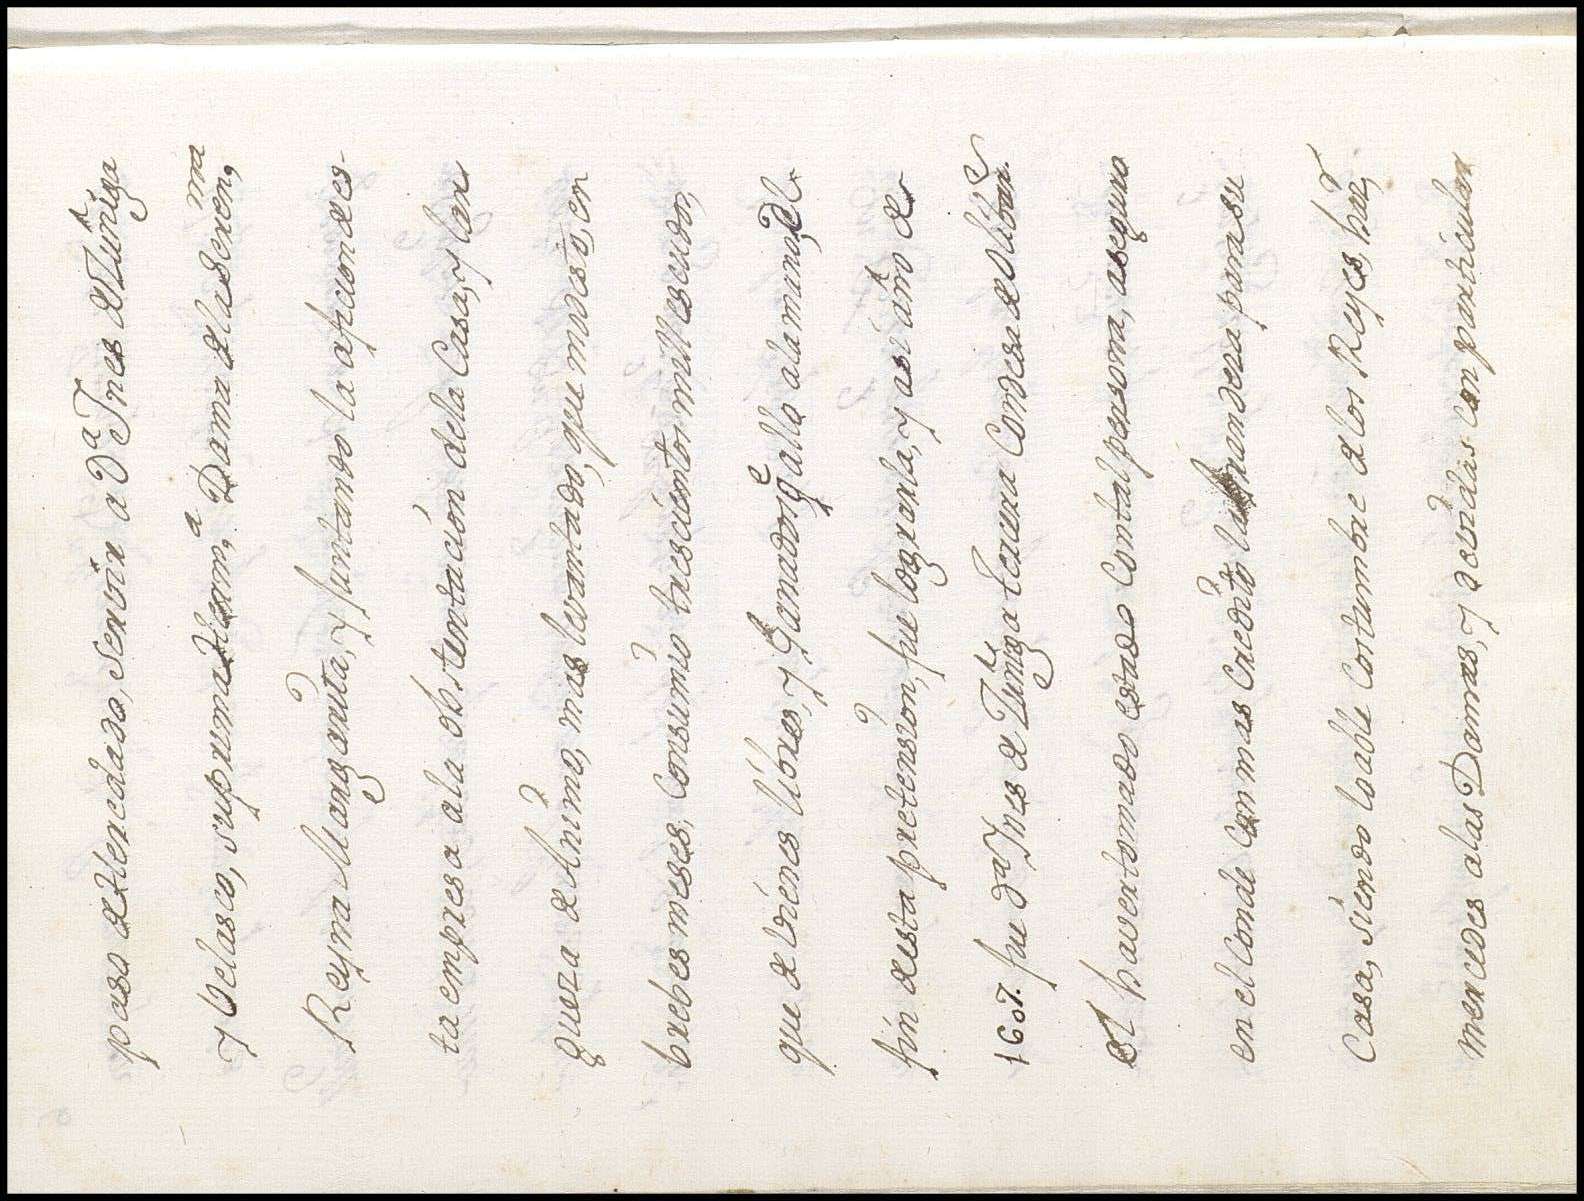 paso de Hencalado, servir a D.ª Ines de Zuñiga
y Velasco, suprima Herm.ª Dama de la seren.ma
Reyna Margarita, y juntando la aficion de es-
ta empresa a la obstentación de la Casa, y lar
gueza de Animo, mas levantado, que modesto, en
brebes meses, Consumio trescientos mill escudos,
que de viénes libres, y Ganados q.e allo a la mano, El
fin de esta pretension, fue lograrla, y asi a ño de
1607. fue d.ª Ines de Zuñiga tercera Condesa de Olibar.s
El haver tomado estado Con tal persona, aseguro
en el Conde Con mas Credito la grandeza para su
Casa, siendo loable Costumbre de los Reyes, haz.r
mercedes a las Damas, y devidas Con particular